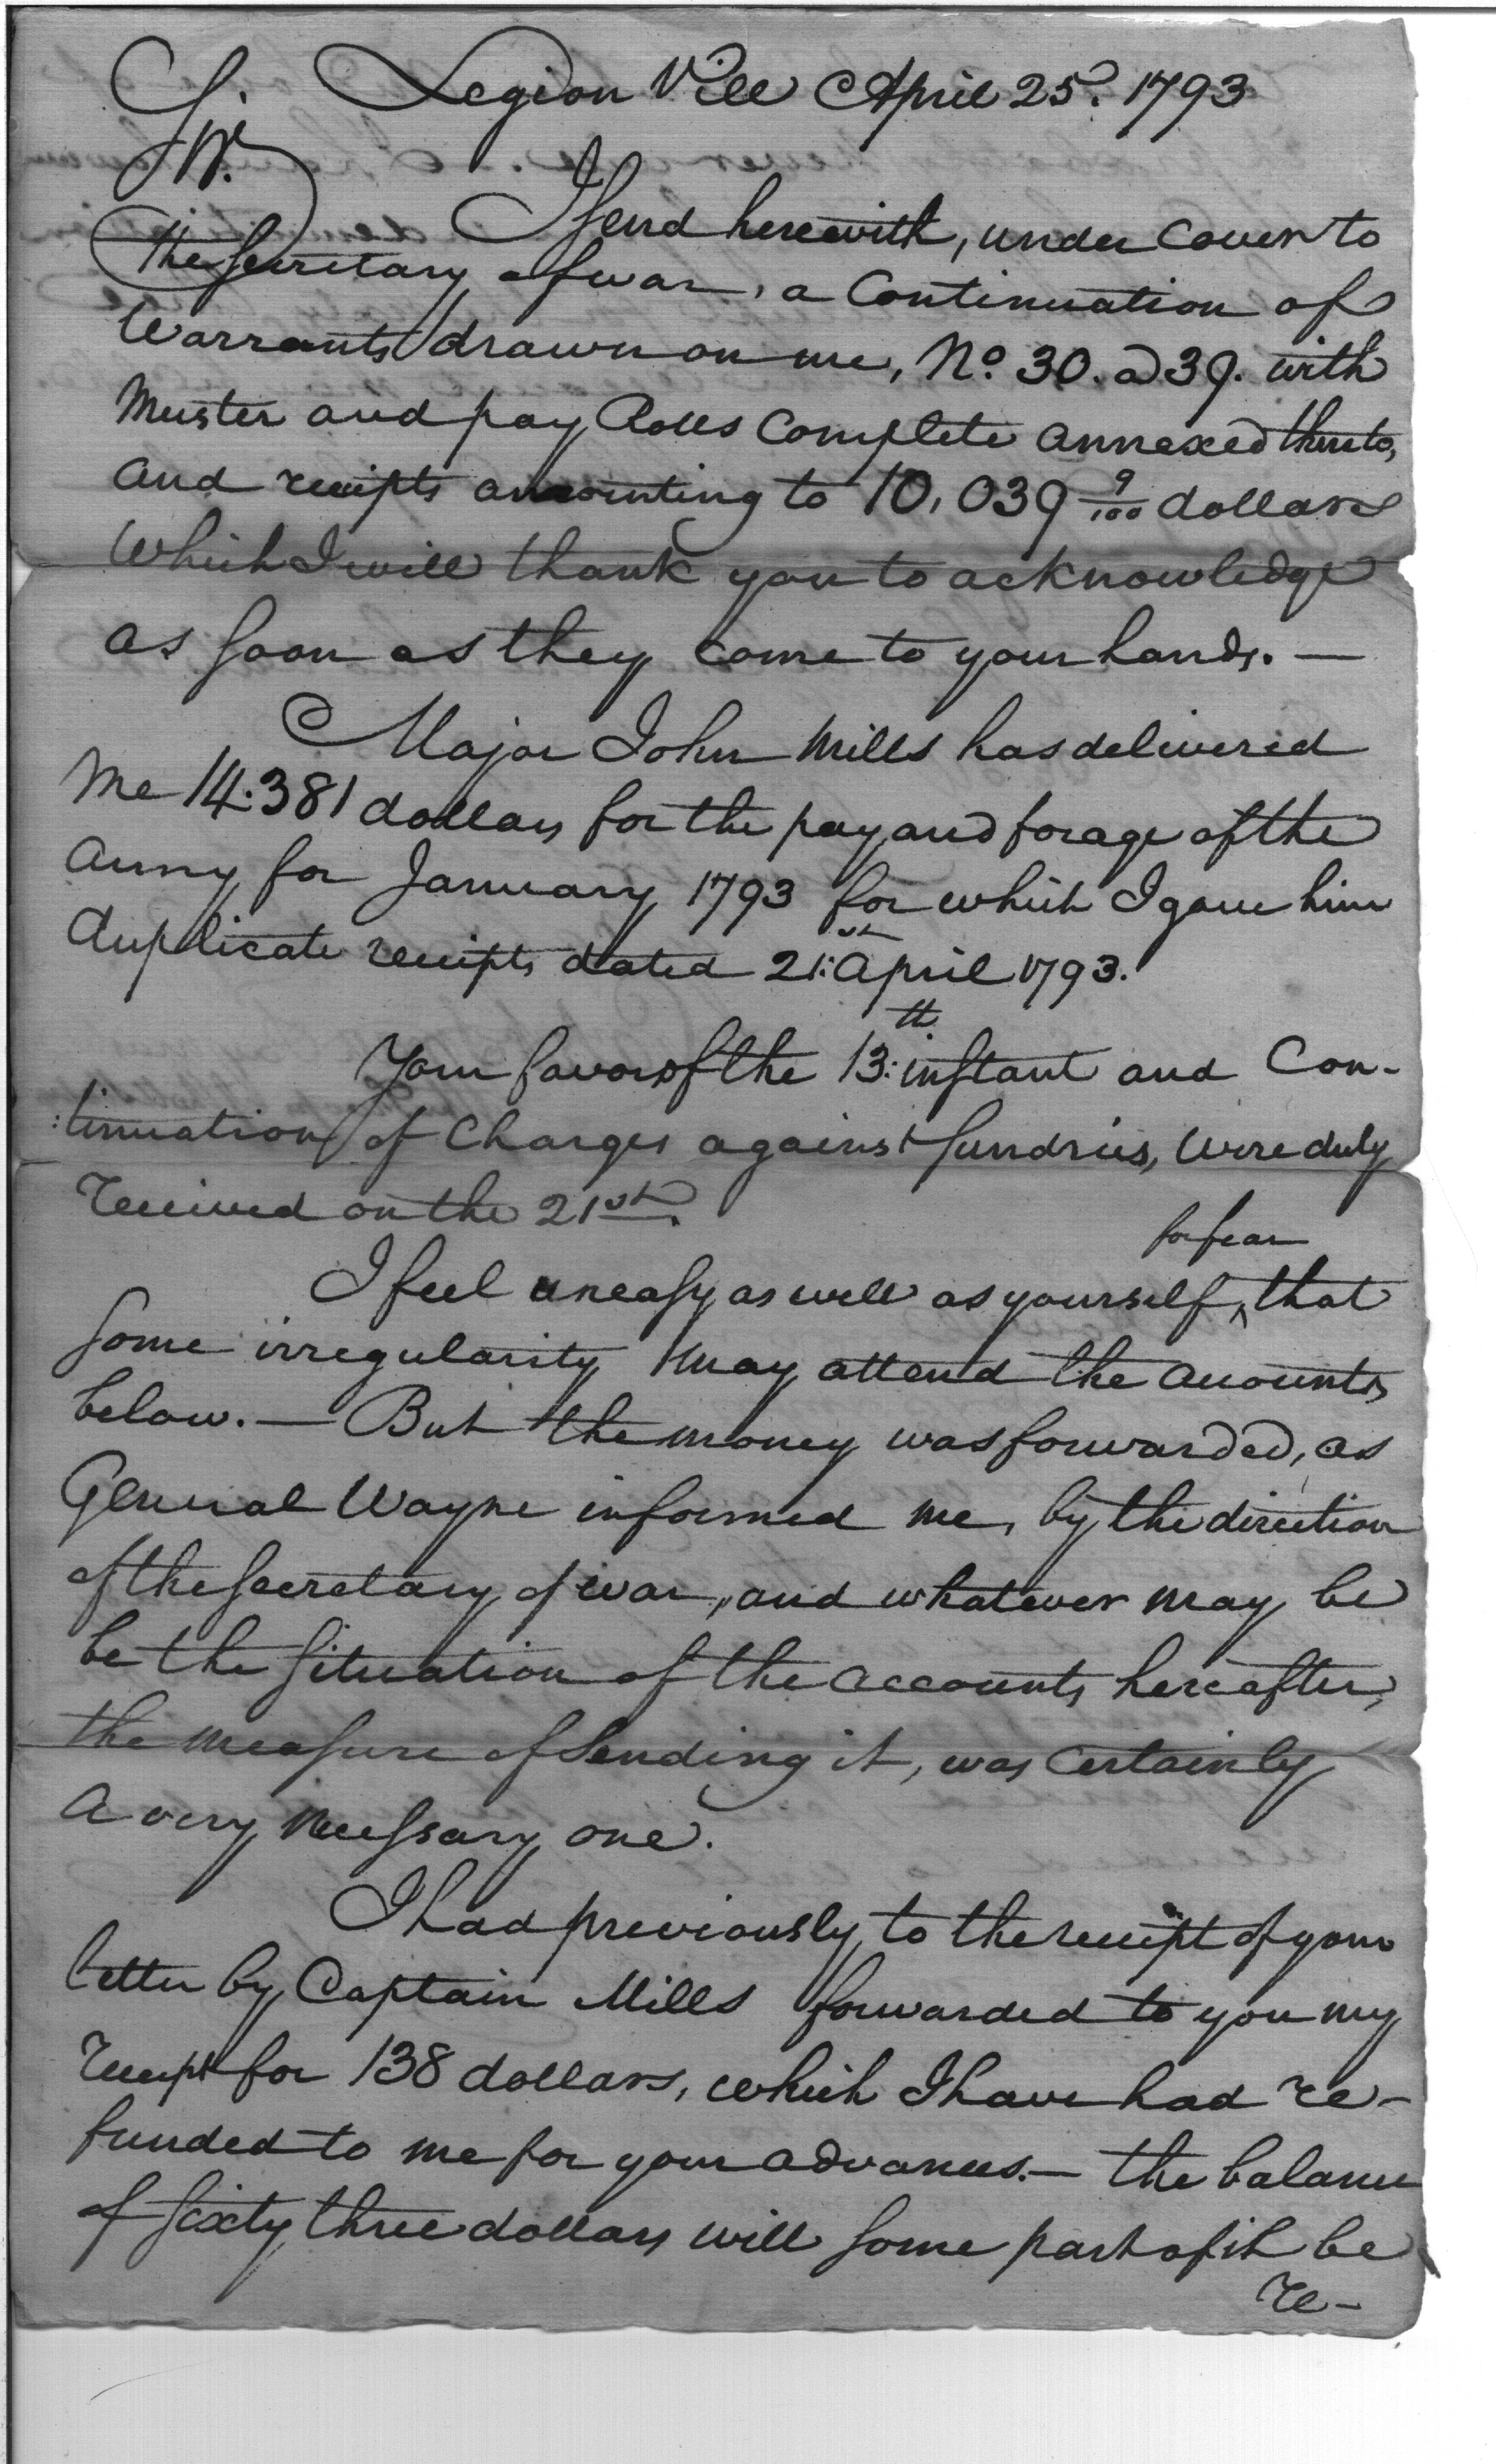 Legion Ville April 25. 1793
Sir.
I send herewith, under cover to
the Secretary of war, a Continuation of
Warrants drawn on me, No. 30. a 39. with
Muster and pay Rolls Complete annexed thereto,
and receipts amounting to 10,039 9/100 dollars
which I will thank you to acknowledge
as soon as they come to your hands. —
Major John Mills has delivered
me 14.381 dollars for the pay and forage of the
Army for January 1793 for which I gave him
duplicate receipts dated 21st April 1793.
Your favor of the 13th instant and Con-
:tinuation of Charges against Sundries, were duly
received on the 21st.
for fear
I feel uneasy as well as yourself ^ that
some irregularity may attend the accounts
below. — But the money was forwarded, as
General Wayne informed me, by the direction
of the Secretary of war, and whatever may be
be the Situation of the accounts hereafter,
the measure of Sending it, was Certainly
a very necessary one.
I had previously to the receipt of your
letter by Captain Mills forwarded to you my
receipt for 138 dollars, which I have had re-
funded to me for your advances. — the balance
of Sixty three dollars will some part of it be
re-